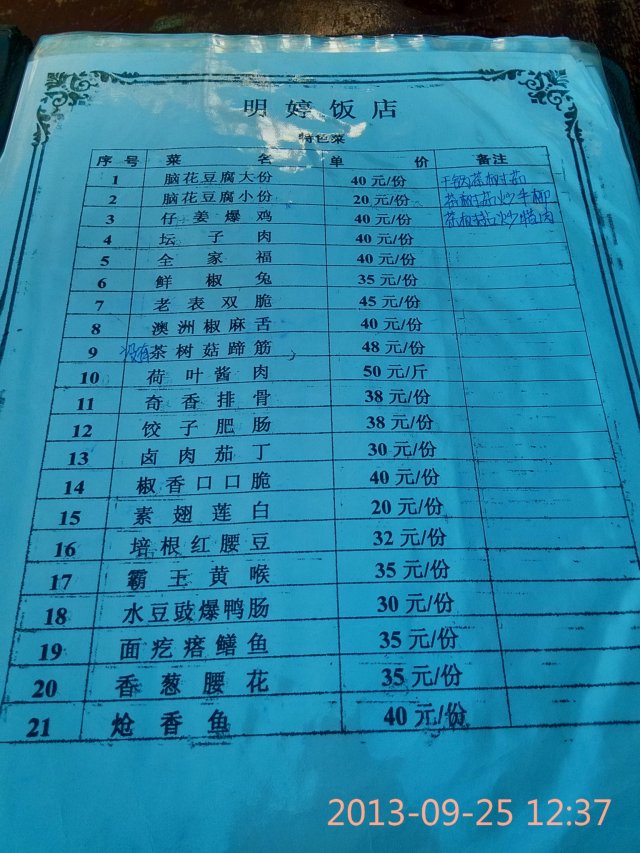 明婷饭店
特色菜
序号 菜名 单价 备注
1 脑花豆腐大份 40 元/份 干锅茶树菇
2 脑花豆腐小份 20 元/份 茶树菇炒牛柳
3 仔姜爆鸡 40 元/份 茶树菇炒腊肉
4 坛子肉 40 元/份
5 全家福 40 元/份
6 鲜椒兔 35 元/份
7 老表双脆 45 元/份
8 澳洲椒麻舌 40 元/份
9 没有 茶树菇蹄筋 48 元/份
10 荷叶酱肉 50 元/斤
11 奇香排骨 38 元/份
12 饺子肥肠 38 元/份
13 卤肉茄丁 30 元/份
14 椒香口口脆 40 元/份
15 素翅莲白 20 元/份
16 培根红腰豆 32 元/份
17 霸王黄喉 35 元/份
18 水豆豉爆鸭肠 30 元/份
19 面疙瘩鳝鱼 35 元/份
20 香葱腰花 35 元/份
21 炝香鱼 40 元/份
2013-09-25 12:37